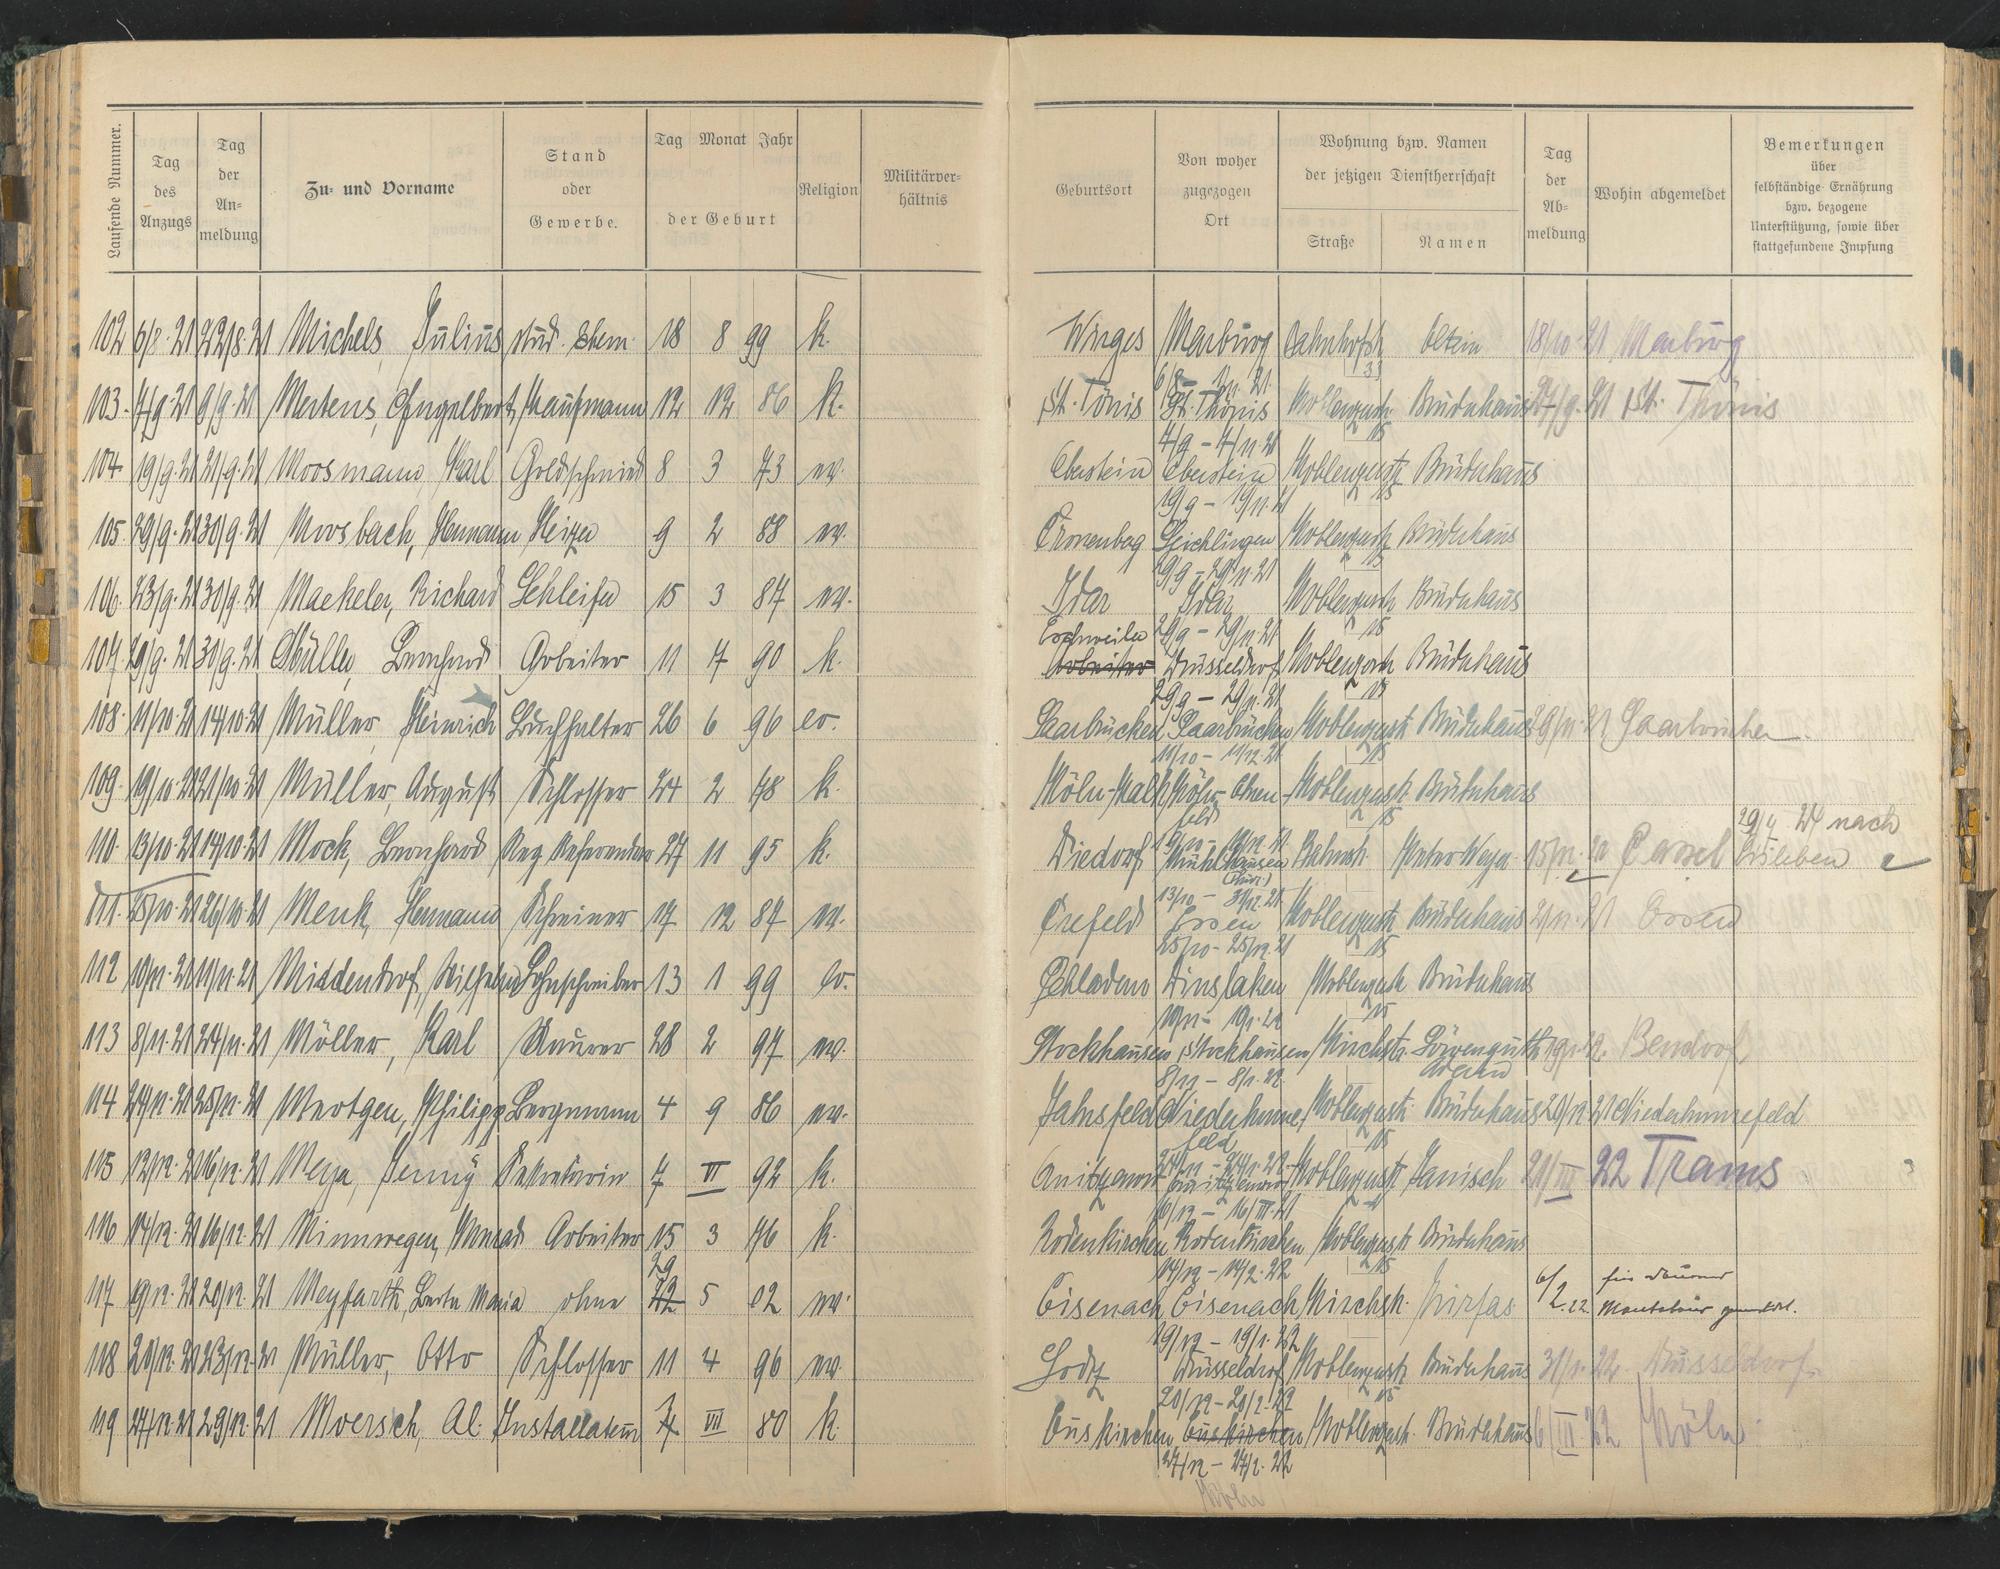 Laufende Nummer.
Tag des Anzugs
Tag der Anmeldung
Zu- und Vorname
Stand oder Gewerbe.
Tag Monat Jahr
der Geburt
Religion
Militärverhältnis
Geburtsort
Von woher zugezogen Ort
Wohnung bzw. Namen der jetzigen Dienstherrschaft
Straße
Namen
Tag der Abmeldung
Wohin abgemeldet
Bemerkungen über selbständige Ernährung bzw. bezogene Unterstützung, sowie über stattgefundene Impfung
102 6/8. 21 22/8. 21 Michels, Julius stud. chem. 18 8 99 k. Wirges Marburg Bahnhofstr 18/10. 21 Marburg
33
103. 4/9. 21 9/9. 21 Mertens, Engelbert Kaufmann 12 12 86 k. St. Tönis St. Thönis Koblenzerstr. Brüderhaus 27/9. 21 St. Thönis
4/9 – 4/11. 21 15
104. 19/9. 21 21/9. 21 Moosmann, Karl Goldschmied 8 3 73 ev. Oberstein Oberstein Koblenzerstr Brüderhaus
19/9 – 19/11. 21 15
105. 29/9. 21 30/9. 21 Moosbach, Hermann Heizer 9 2 88 ev. Cronenberg Leichlingen Koblenzerstr Brüderhaus
29/9 – 29/11. 21 15
106. 23/9. 21 30/9. 21 Maekeler, Richard Schleifer 15 3 87 ev. Idar Idar Koblenzerstr Brüderhaus
Eschweiler 29/9 – 29/11. 21 15
107 29/9. 21 30/9. 21 Müller, Bernhard Arbeiter 11 7 90 k. Arbeiter Düsseldorf Koblenzerstr Brüderhaus
29/9 – 29/11. 21 15
108. 11/10. 21 14/10. 21 Müller, Heinrich Buchhalter 26 6 96 ev. Saarbrücken Saarbrücken Koblenzerstr. Brüderhaus 29/11. 21 Saarbrücken
11/10 – 11/12. 21 15
109. 19/10. 21 21/10. 21 Müller, August Schlosser 24 2 78 k. Köln-Kalk Köln-Ehrenfeld Koblenzerstr. Brüderhaus
15
29/4 24 nach
110. 13/10. 21 14/10. 21 Mock, Bernhard Reg. Referendar 27 11 95 k. Diedorf Mühlhausen (Thür.) Bahnstr. Peter Meyer Cassel Eisleben
13/10 – 31/12. 21
111. 25/10. 21 26/10. 21 Menk, Hermann Schreiner 17 12 87 ev. Crefeld Essen Koblenzerstr. Brüderhaus 2/11. 21 Essen
25/10 – 25/12. 21 15
112 10/11. 21 11/11. 21 Middendorf, Wilhelm Lohnschreiber 13 1 99 ev. Schladern Dinslaken Koblenzerstr Brüderhaus
10/11 – 10/1. 22 15
113 8/11. 21 24/11. 21 Möller, Karl Maurer 28 2 97 ev. Stockhausen Stockhausen Kirchstr. Löwenguth Bendorf
8/11 – 8/1. 22
114 24/11. 21 25/11. 21 Mertgen, Philipp Bergmann 4 9 86 ev. Jahrsfeld Niederhonnefeld Koblenzerstr. Brüderhaus 20/12. 21 Niederhonnefeld
24/11 – 24/1. 22 15
115 12/12. 21 16/12. 21 Meya, Jenny Sekretärin 7 VI 92 k. Koblenzerstr Janisch 21/III 22 Trams
16/12 – 16/III. 21
116 14/12. 21 16/12. 21 Minnwegen, Konrad Arbeiter 15 3 76 k. Rodenkirchen Rodenkirchen Koblenzerstr Brüderhaus
29 14/12 – 14/2. 22 15
117 19/12. 21 20/12. 21 Meyfarth, Berta Maria ohne 22 5 02 ev. Eisenach Eisenach Kirchstr. Kirfas 6/2. 22 für dauernd
Montabaur gemeldet.
19/12 – 19/1. 22
118 20/12. 21 23/12. 21 Müller, Otto Schlosser 11 4 96 ev. Lodz Düsseldorf Koblenzerstr. Brüderhaus 31/1. 22 Düsseldorf
20/12 – 20/2. 22 15
119 27/12. 21 29/12. 21 Moersch, Al. Installateur 7 VII 80 k. Euskirchen Euskirchen Koblenzerstr. Brüderhaus 6/III 22 Köln
27/12 – 27/2. 22
Köln